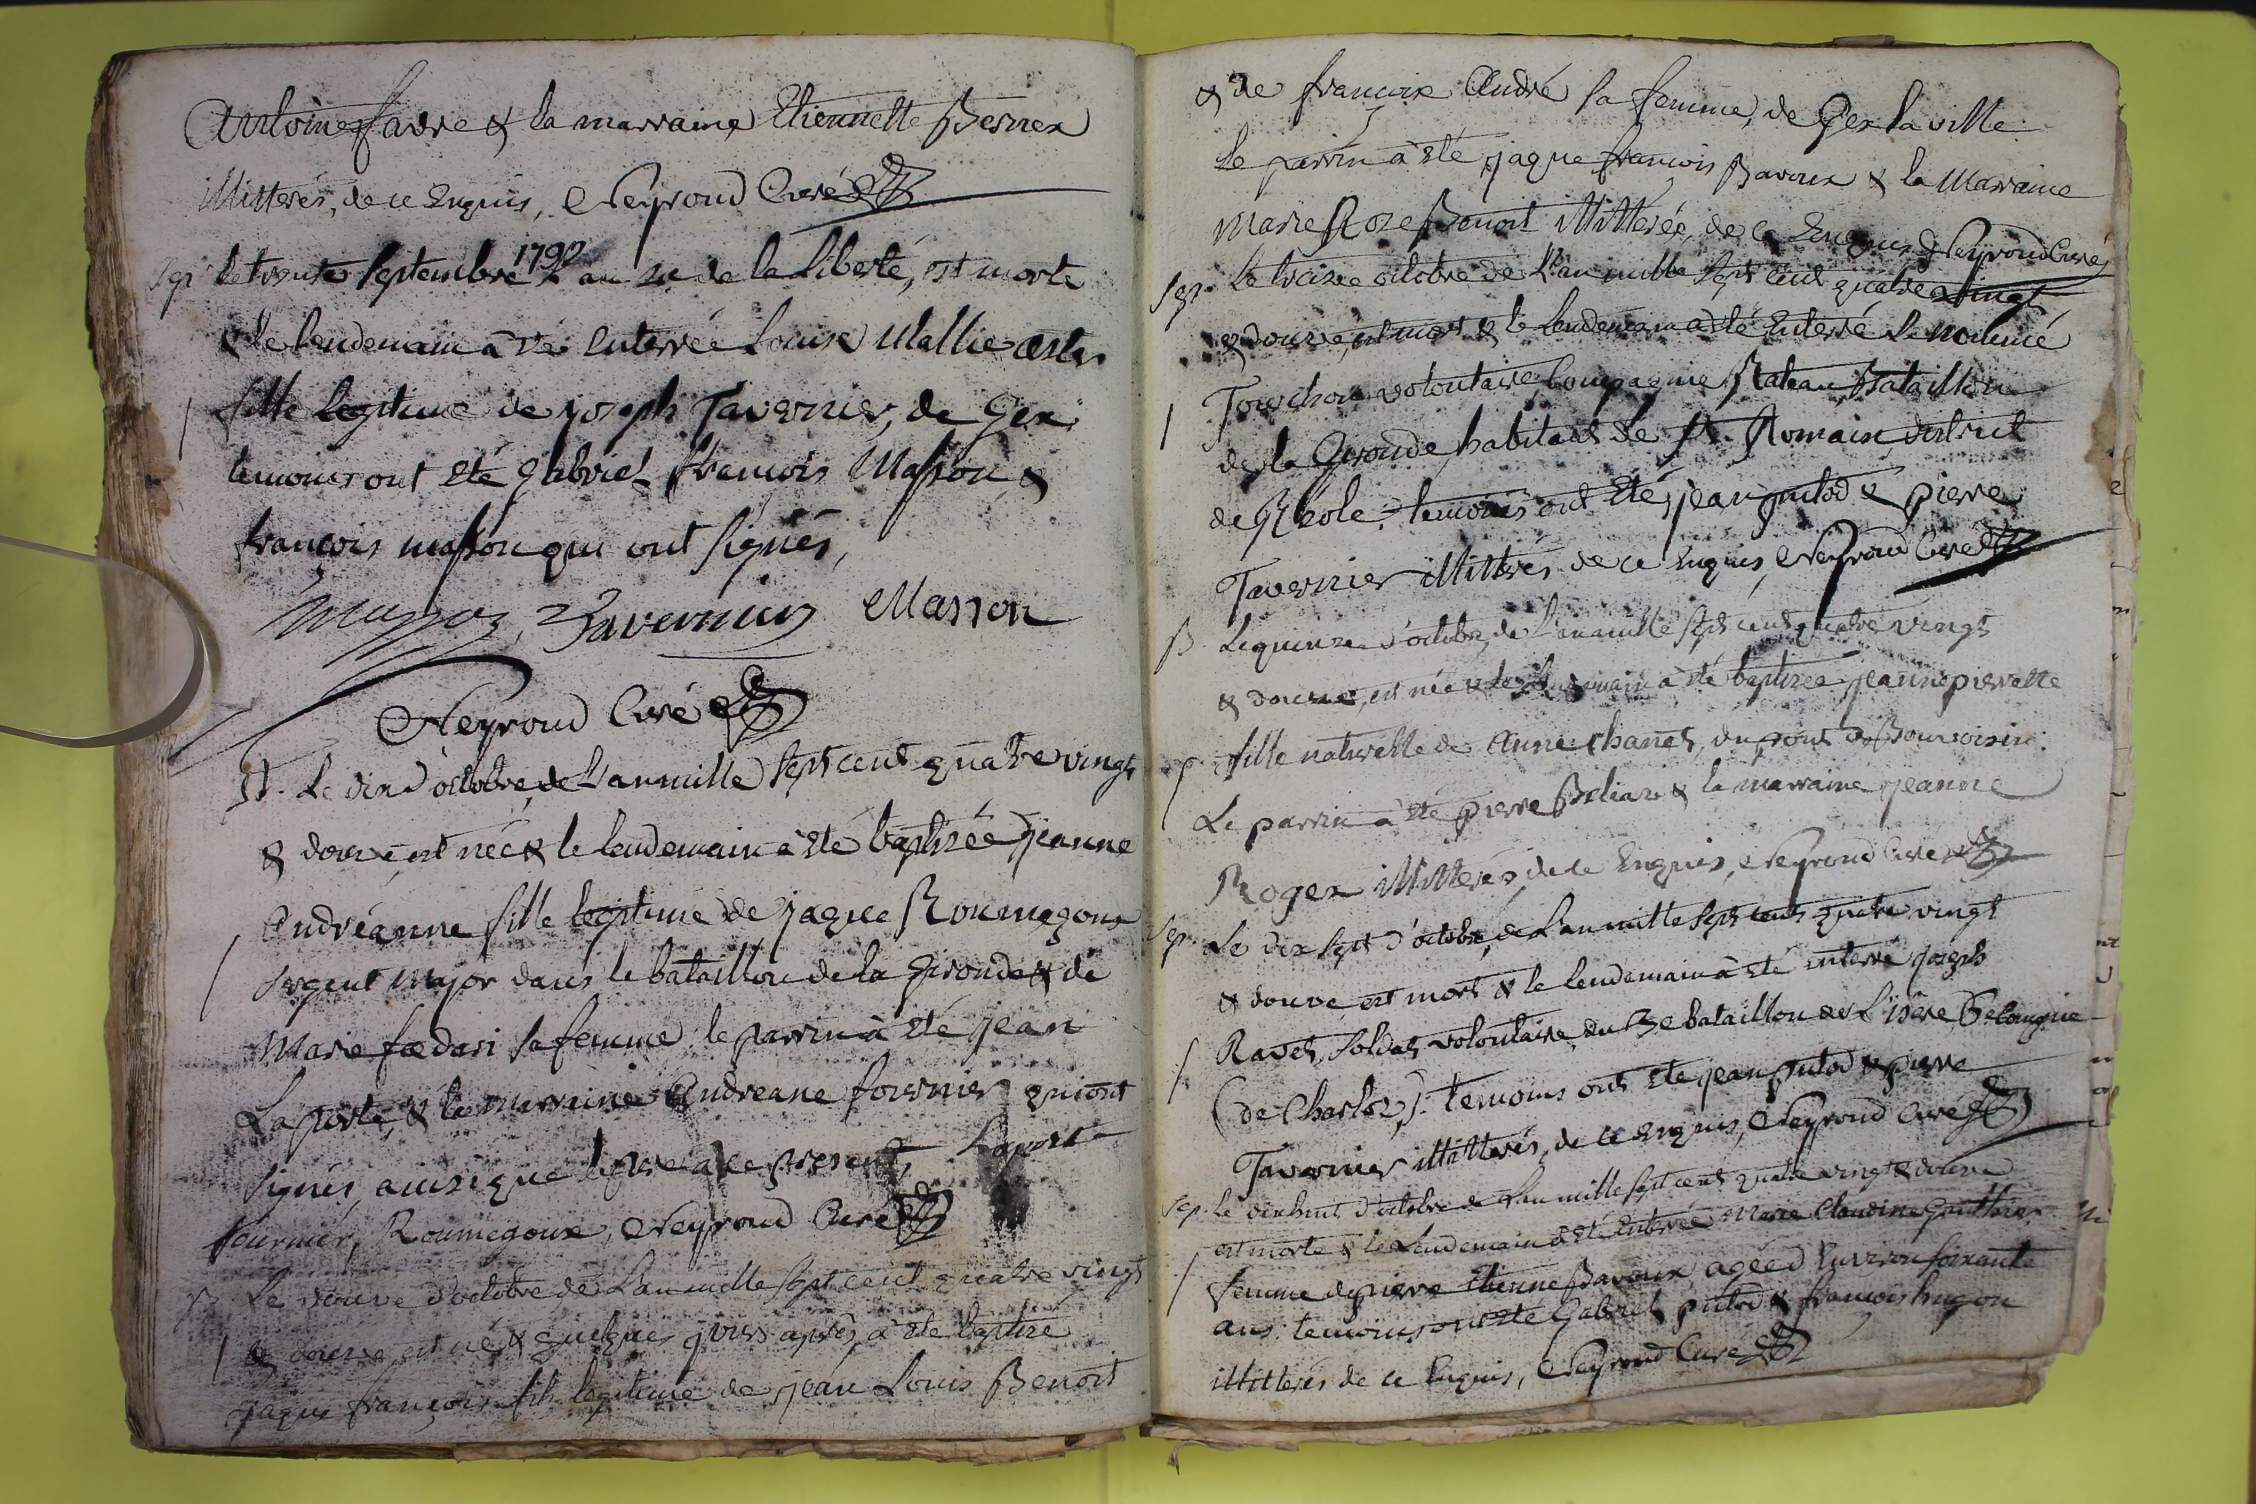 Antoine favre & la marraine Etiennette Besnex
illitterés, de ce Enquis, Neyroud Curé
Sep. Le trente Septembre 1792 L'an 4e de la Liberté, est morte
& le lendemain à été Enterrée Louise
fille legitime de joseph Tavernier, de Gex
temoins ont été gabriel françois Masson &
françois masson qui ont signés,
Tavernier Masson
Neyroud Curé
B. Le dix d'octobre, de L'an mille sept cent quatre vingt
& douze, est née & le lendemain à été baptisée jeanne
Andréanne fille legitime de jaque Roumegoux
sergent Major dans le bataillon de la Gironde & de
Marie foedari sa femme: le parrin à été jean
Laporte, & la marraine Andreane fournier qui ont
signés, ainsi que le pere a ce present, Laporte
fournier, Roumegoux, Neyroud Curé
B. Le douze d'octobre, de L'an mille sept cent quatre vingt
& douze, est né & quelques jours après, à été baptisé
jaque françois fils legitime de jean Louis Benoit
& de françoise André sa femme, de Gex la ville
Le parrin à été jaque françois Bavoux & la Marraine
Marie Roze Benoit illitterée, de ce Enquis, Neyroud Curé
Sep. Le treize octobre de L'an mille sept cent quatre vingt
& douze, est mort & le lendemain a été Enterré Le nommé
Touchon volontaire, Compagnie Rateau, Bataillon
de la Gironde, habitant de St. Romain, district
de Réole: temoins ont été, jean pulod & pierre
Tavernier illitterés de ce Enquis, Neyroud Curé
B. Le quinze d'octobre, de L'an mille sept cent quatre vingt
& douze, est née & le lendemain à été baptisée jeanne pierrette
fille naturelle de Anne Chanel, du pont de
Le parrin à été pierre & la marraine jeanne
Roger illitterés, de ce Enquis, Neyroud Curé
Sep. Le dix sept d'octobre, de L'an mille sept cent quatre vingt
& douze est mort & le lendemain à été enterré joseph
Ravet, soldat volontaire du 3e bataillon de L'isere
(de Charloz): temoins ont été jean pulod & pierre
Tavernier illitterés, de ce Enquis, Neyroud Curé
Sep. Le dix huit d'octobre de L'an mille sept cent quatre vingt & douze
est morte & le Lendemain à été Enterrée Marie Claudine Gauthier
femme de pierre Etienne Bavoux, agée d'Environ soixante
ans: temoins ont été Gabriel pulod & françois hugon
illitterés de ce Enquis, Neyroud Curé